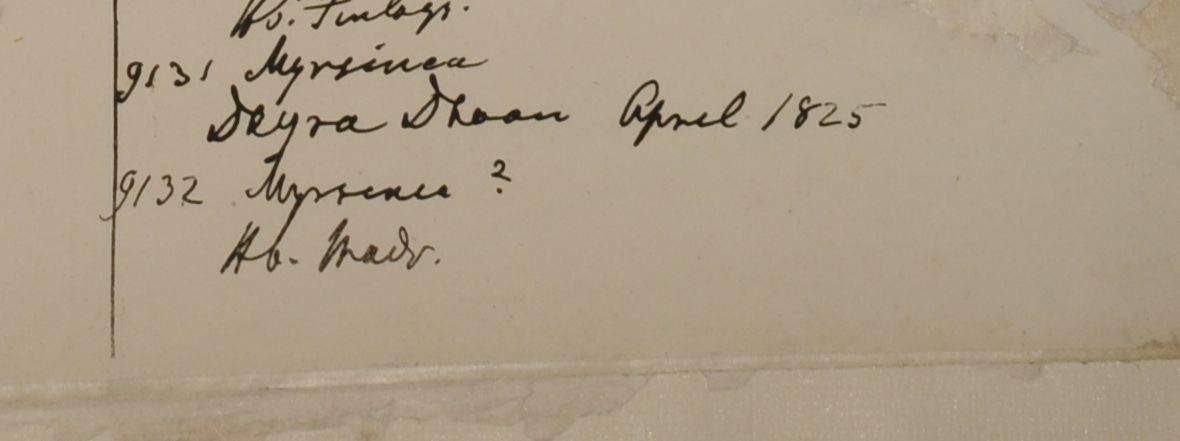 Hb. Finlays.
9131 Myrsinea
Deyra Dhoon April 1825
9132 Myrsinea ?
Hb. Madr.